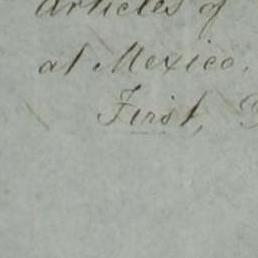 Articles of
at Mexico.
First,